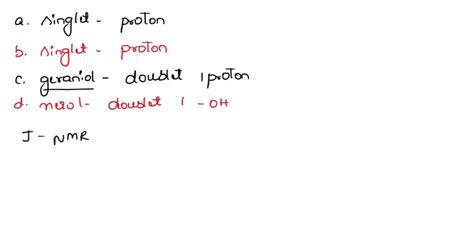 a. singlet - proton
b. singlet - proton
c. geraniol - doublet 1 proton
d. nerol - doublet 1 - OH
J - NMR